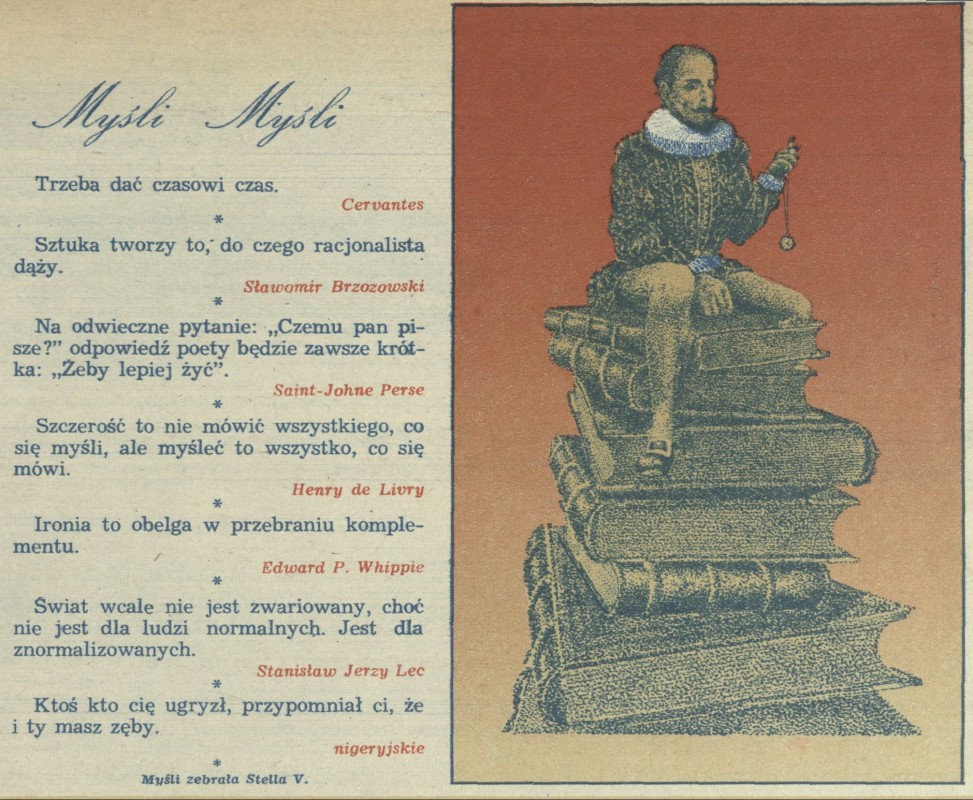 Myśli Myśli
Trzeba dać czasowi czas.
Cervantes
*
Sztuka tworzy to, do czego racjonalista
dąży.
Sławomir Brzozowski
*
Na odwieczne pytanie: „Czemu pan pi-
sze?" odpowiedź poety będzie zawsze krót-
ka: „Żeby lepiej żyć".
Saint-Johne Perse
*
Szczerość to nie mówić wszystkiego, co
się myśli, ale myśleć to wszystko, co się
mówi.
Henry de Livry
*
Ironia to obelga w przebraniu komple-
mentu.
Edward P. Whippie
*
Świat wcale nie jest zwariowany, choć
nie jest dla ludzi normalnych. Jest dla
znormalizowanych.
Stanisław Jerzy Lec
*
Ktoś kto cię ugryzł, przypomniał ci, że
i ty masz zęby.
nigeryjskie
*
Myśli zebrała Stella V.